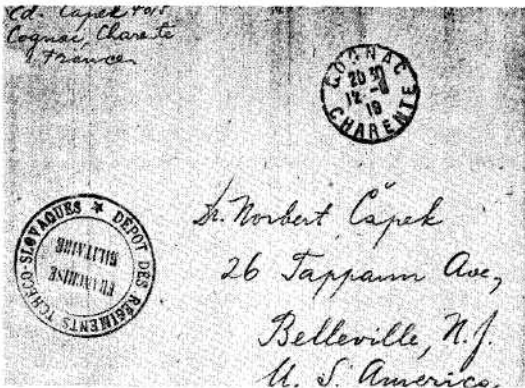 Ed. Čapek
Cognac, Charente
France
COGNAC
20 30
12 -
19
CHARENTE
★ DÉPOT DES RÉGIMENTS TCHÉCO-SLOVAQUES
FRANCHISE
MILITAIRE
Dr. Norbert Čapek
26 Tappann Ave,
Belleville, N.J.
U. S. America.